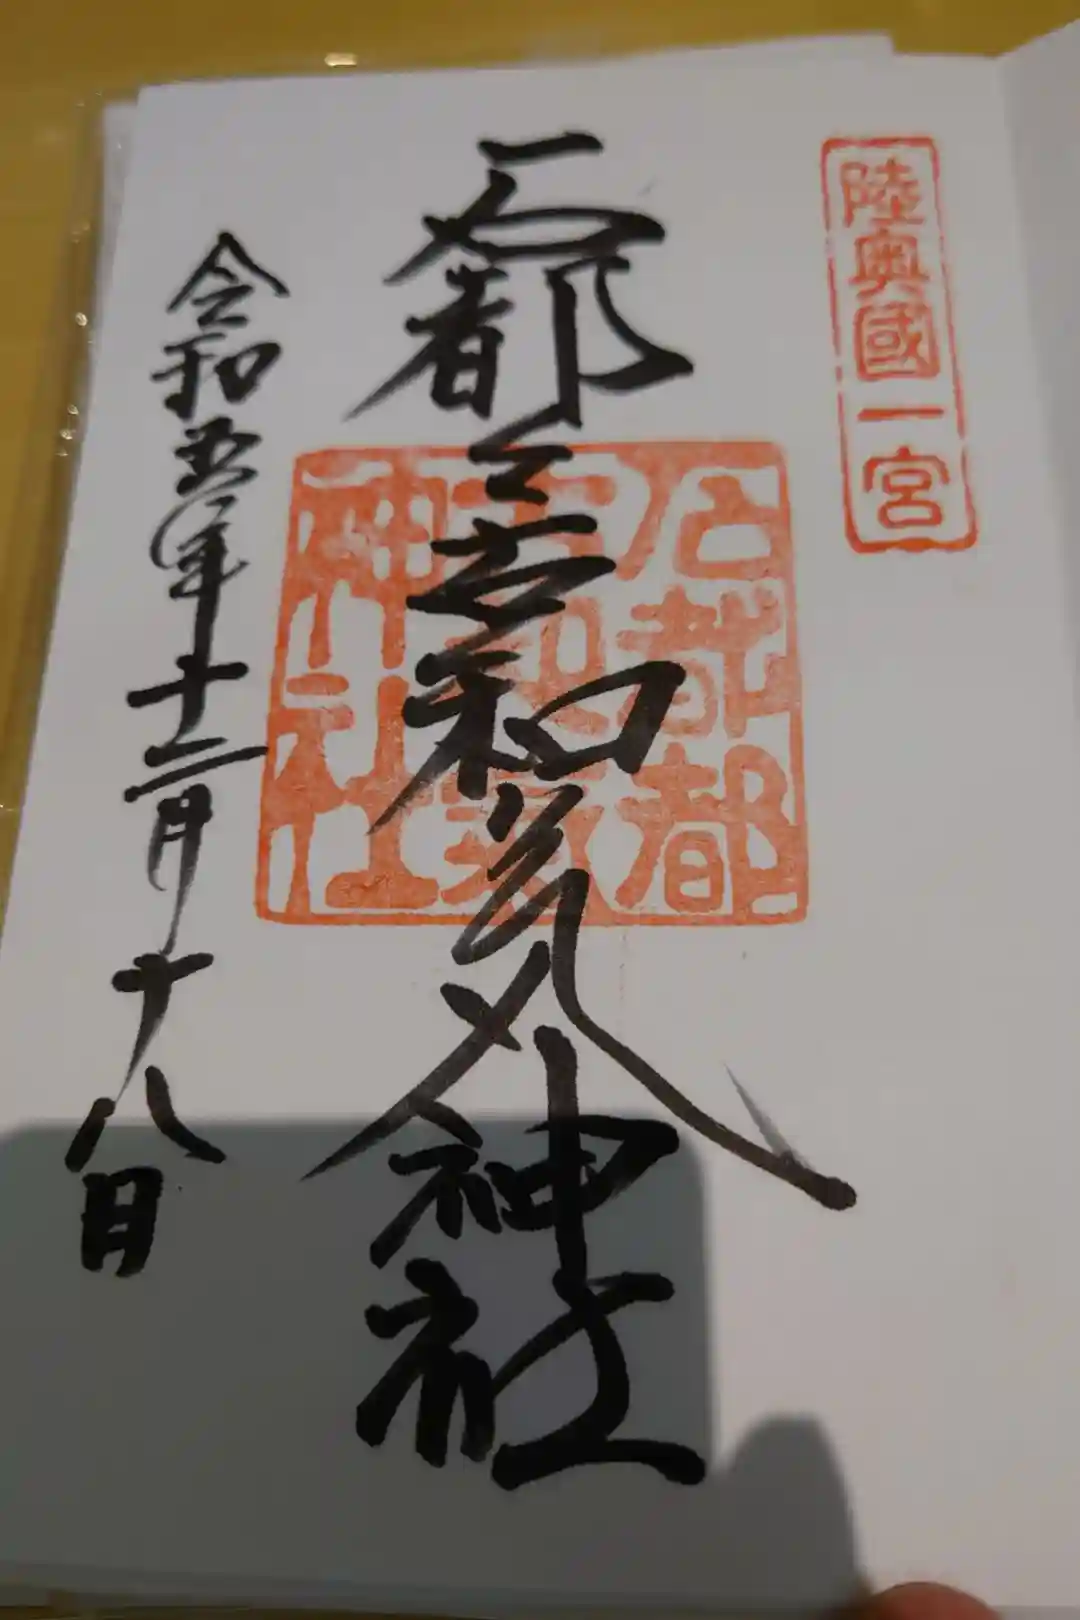 陸奥國一宮
石都々古和気神社
石都
都古和氣
神社
令和五年十二月十八日